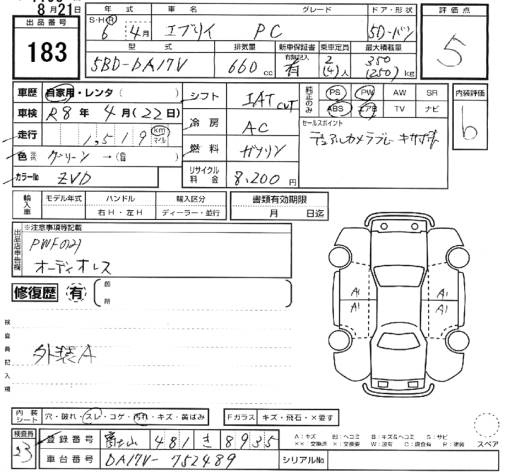 8月21日
出品番号
183
年式 車名 グレード ドア・形状 評価点
S・H・R 6年4月 エブリイ PC 5D-バン 5
型式 排気量 新車保証書 乗車定員 最大積載量
有 記録入り 350
5BD-DA17V 660cc 2(4)人 (250)kg
車歴 自家用・レンタ( ) シフト IAT CVT 純正のみ PS PW AW SR 内装評価
車検 R8年4月(22日) 冷房 AC ABS エアB TV ナビ b
走行 1,519 km マイル セールスポイント
色 グリーン → (色) 燃料 ガソリン デュアルカメラブレーキサポート
カラーNo ZVD リサイクル料金 8,200円
輸入車 モデル年式 ハンドル 輸入区分 書類有効期限
右H・左H ディーラー・並行 月 日迄
出品店申告欄 ※注意事項等記載
PWFのみ
オーディオレス
修復歴 有 箇所
A1 A1
A1 A1
検査員記入欄
外装A
内装シート 穴・破れ・スレ・コゲ・汚れ・キズ・黄ばみ Fガラス キズ・飛石・×要す
検査員 23
登録番号 富士山 481 き 8935
A:キズ E:ヘコミ B:キズ&ヘコミ S:サビ
××:交換済 ×:交換要 W:波有 C:腐食有 P:塗装 スペア
車台番号 DA17V-752489 シリアルNo